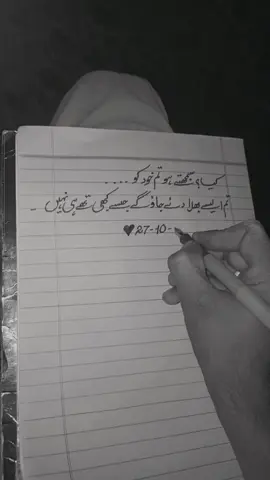 کیا؟ سمجھتے ہو تم خود کو . . . .
تم ایسے بھلا دئے جاؤ گے جیسے کبھی تھے ہی نہیں ۔
♥27-10-